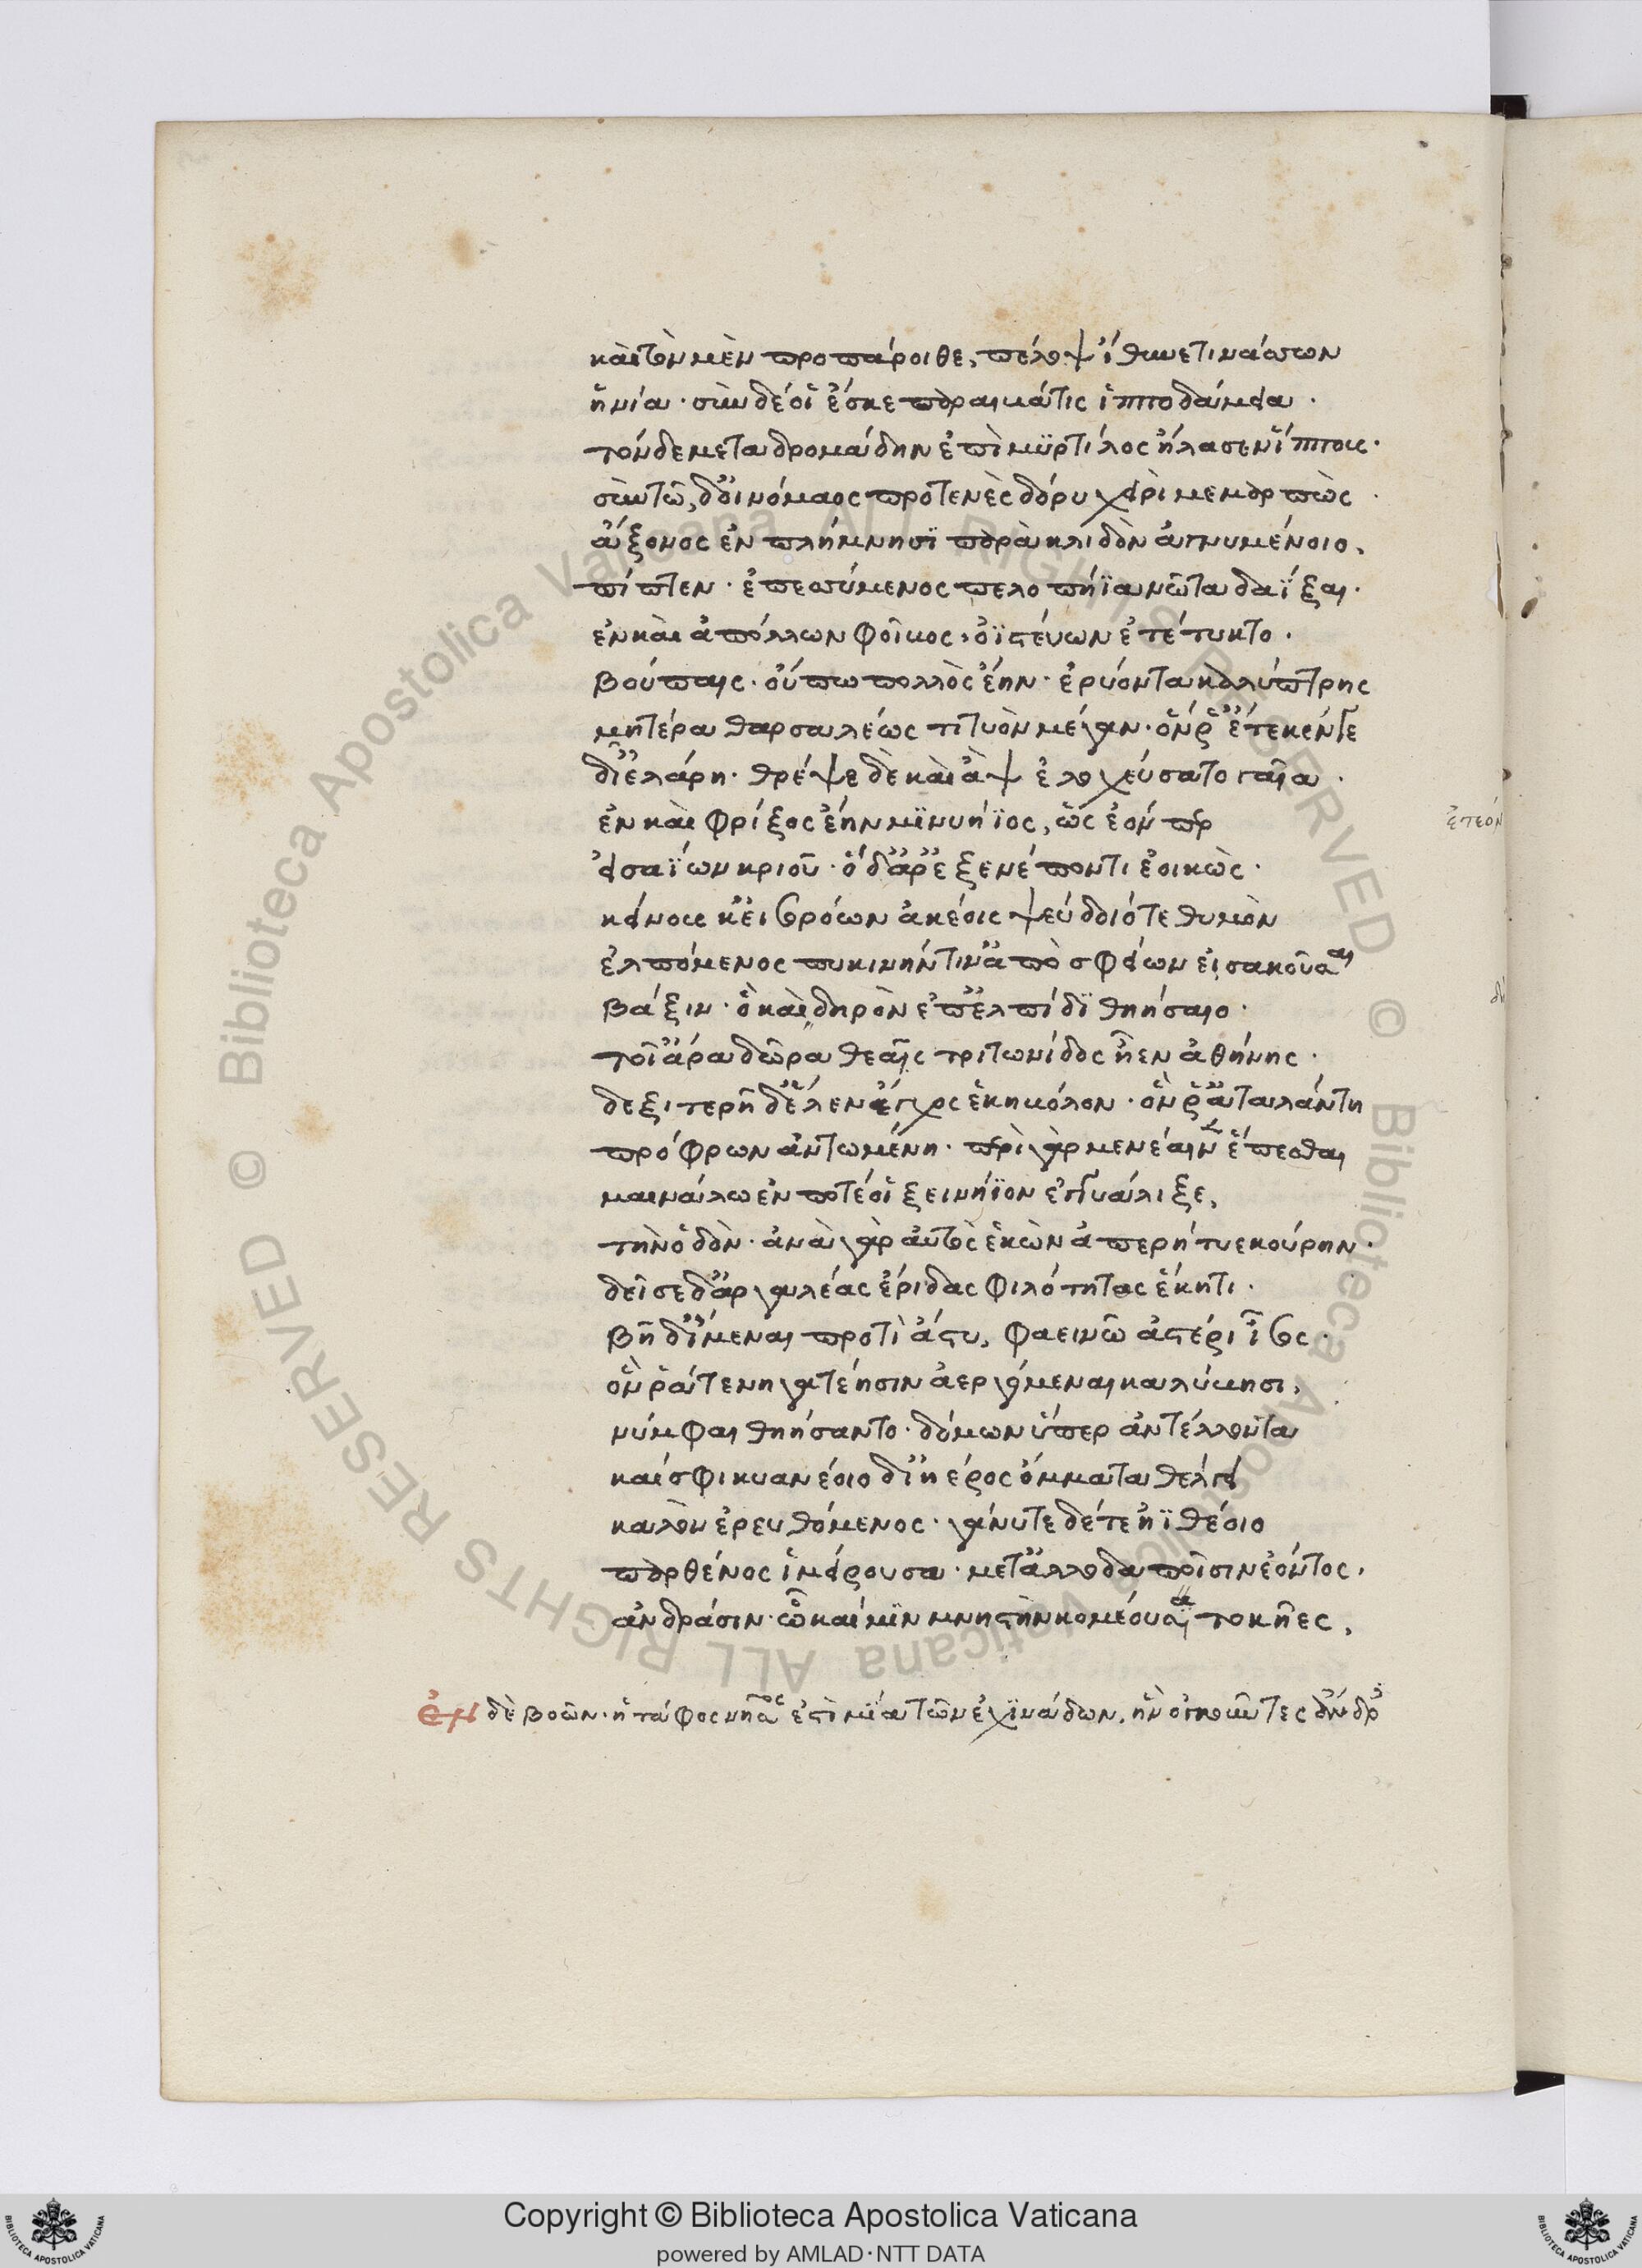 καὶ τὸν μὲν προπάροιθε, πέλοψ ἴθυνε τινάσσων
ἡνία· σὺν δέ οἱ ἔσκε παραιβάτις ἱπποδάμεια·
τὸν δὲ μεταδρομάδην ἐπὶ μϋρτίλος ἤλασεν ἵππους·
σὺν τῶ, δ' οἰνόμαος προτενὲς δόρυ χειρὶ μεμαρπὼς·
ἄξονος ἐν πλήμνησϊ παρὰκλιδὸν ἀγνυμένοιο,
πίπτεν· ἐπεσσύμενος πελοπήϊα νῶτα δαΐξαι·
ἐν καὶ ἀπόλλων φοῖβος, ὀϊστεύων ἐτέτυκτο·
βούπαις· οὔπω πολλὸς ἔην· ἐρύοντα καλύπτρης
μητέρα θαρσαλέως τιτυὸν μέγαν· ὅν ῥ' ἔτεκέν γε
δῖ' ἐλάρη· θρέψε δὲ καὶ ἂψ ἐλοχεύσατο γαῖα·
ἐν καὶ φρίξος ἔην μϊνυήϊος, ὣς ἐὸν περ
εἰσαΐων κριοῦ· ὁ δ' ἄρ' ἐξενέποντι ἐοικὼς·
κείνους κ' εἰσορόων ἀκέοις ψεύδοιό τε θυμὸν
ἐλπόμενος πυκινήν τιν' ἀπὸ σφείων εἰσακοῦσαι
βάξιν· ὃ καὶ δηρὸν ἐπ' ἐλπίδϊ θηήσαιο·
τοῖ' ἄρα δῶρα θεᾶς τριτωνίδος ἦεν ἀθήνης·
δεξιτερῆ δ' ἕλεν ἔγχος ἑκηβόλον· ὅν ῥ' ἀταλάντη
πρόφρων ἀντωμένη· περὶ γὰρ μενέαιν' ἕπεσθαι
μαινάλω ἔν ποτέ οἱ ξεινήϊον ἐγγυάλιξε,
τὴν ὁδὸν· ἀνὰ γὰρ αὐτὸς ἑκὼν ἀπερήτυε κούρην·
δεῖσε δ' ἄρ γαλέας ἔριδας φιλότητος ἕκητι·
βῆ δ' ἴμεναι προτὶ ἄστυ, φαεινῶ ἀστέρι ἶσος·
ὅν ῥά τε νηγατέησιν ἀεργόμεναι καλύβησι,
νύμφαι θηήσαντο· δόμων ὕπερ ἀντέλλοντα
καί σφι κυανέοιο δι' ἠέρος ὄμματα θέλγει
καλὸν ἐρευθόμενος· γάνυτε δέ τε ἠϊθέοιο
παρθένος ἱμείρουσα· μετ' ἀλλοδαποῖσιν ἐόντος,
ἀνδράσιν· ὧ καί μϊν μνηστὴν κομέουσϊ τοκῆες,
Ἐν δὲ βοῶν· ἡ τάφος νῆσός ἐστὶ μΐα τῶν ἐχϊνάδων, ἣν οἰκοῦντες
ἐτεὸν